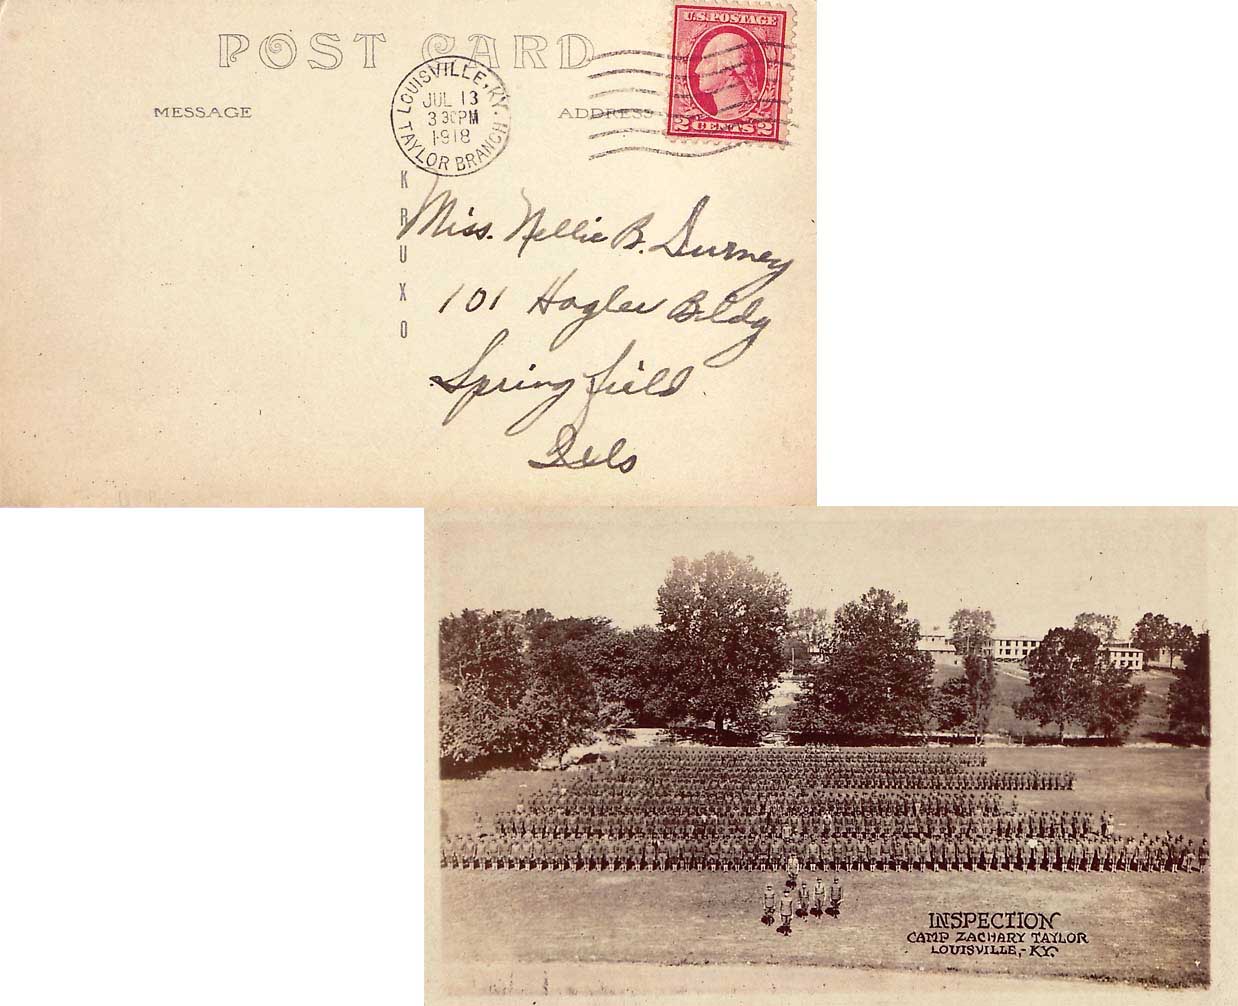 POST CARD
MESSAGE
ADDRESS
U.S. POSTAGE
2 CENTS 2
LOUISVILLE, KY.
JUL 13
3 30 PM
1918
TAYLOR BRANCH
KRUXO
Miss. Nellie B. Durney
101 Bldg
Springfield
Ills
INSPECTION
CAMP ZACHARY TAYLOR
LOUISVILLE,-KY.